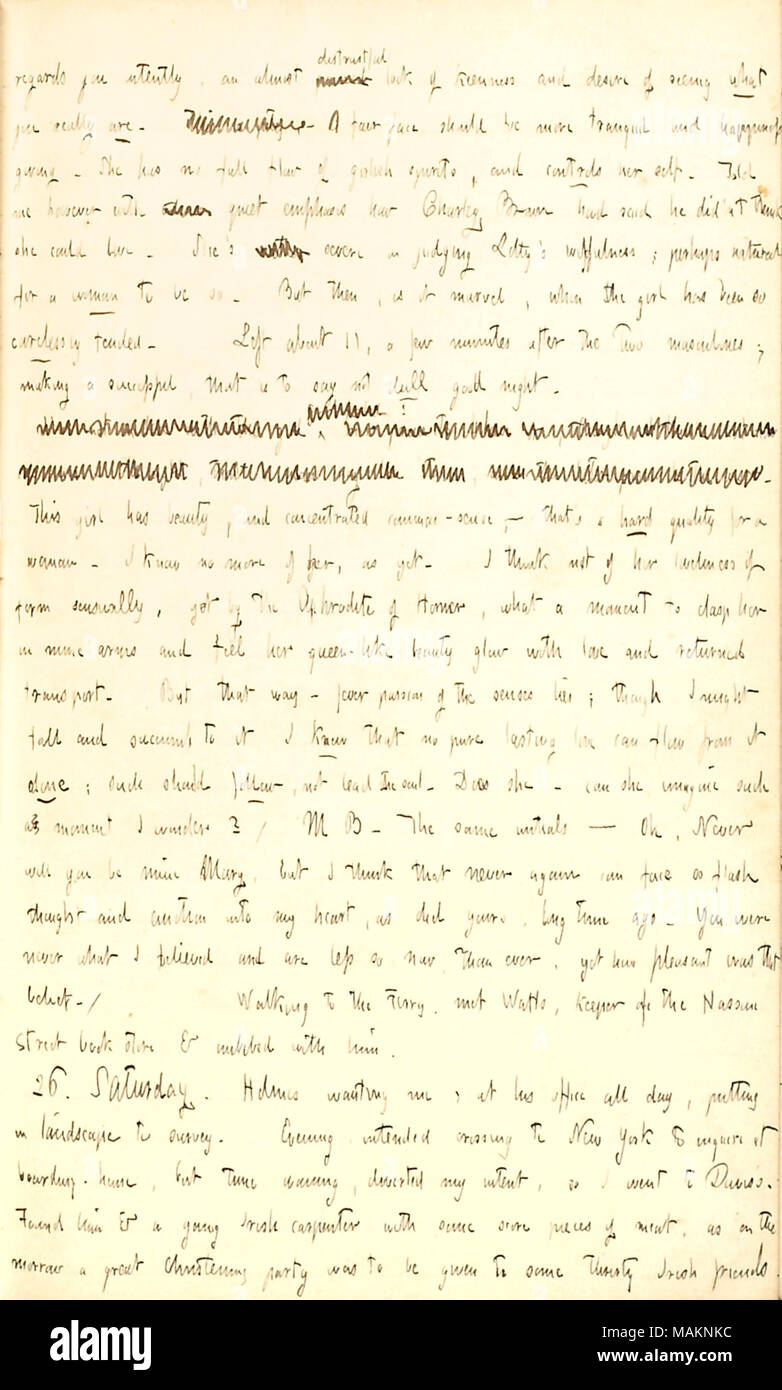 distrustful
regards you intently, an almost look of keenness and desire of seeing what
you really are. A fair face should be more tranquil and happiness
giving. She has no full flow of girlish spirits, and controls her self. Told
me however with quiet emphasis how Charley Brown had said he did'nt think
she could love. She's severe in judging Letty's wilfulness; perhaps natural
for a woman to be so. But then, is it marvel, when the girl has been so
carelessly tended. Left about 11, a few minutes after the two masculines;
making a successful, that is to say not dull good night.
This girl has beauty, and concentrated common-sense, — that's a hard quality for a
woman. I know no more of her, as yet. I think not of her loveliness of
form sensually, yet by the Aphrodite of Homer, what a moment to clasp her
in mine arms and feel her queen-like beauty glow with love and returned
transport. But that way - fever passion of the senses lies; though I might
fall and succumb to it I know that no pure lasting love can flow from it
alone; such should follow, not lead the soul. Does she - can she imagine such
a moment I wonder? / M B. The same initials — Oh, Never
will you be mine Mary, but I think that never again can face so flash
thought and emotion into my heart, as did yours, long time ago. You were
never what I believed and are less so now, than ever, yet how pleasant was that
belief. / Walking to the Ferry, met Watts, keeper of the Nassau
Street book store & imbibed with him.
26. Saturday. Holmes wanting me; at his office all day, putting
in landscape to survey. Evening intended crossing to New York to inquire at
boarding-house, but time waning, diverted my intent, so I went to Davis's.
Found him & a young Irish carpenter with some score pieces of meat, as on the
morrow a great Christening party was to be given to some thirsty Irish friends.
alamy
Image ID: MAKNKC
www.alamy.com